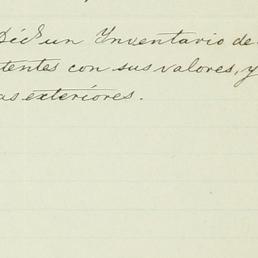 un Inventario de
tentes con sus valores, y
as exteriores.